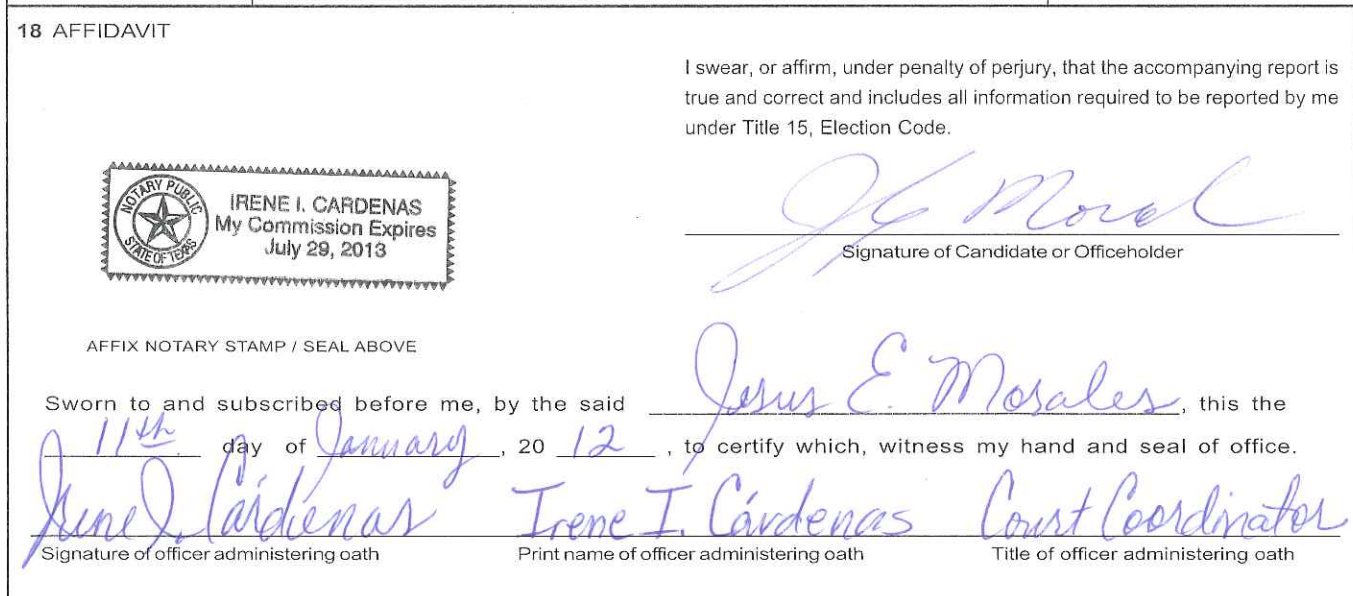 18 AFFIDAVIT
I swear, or affirm, under penalty of perjury, that the accompanying report is
true and correct and includes all information required to be reported by me
under Title 15, Election Code.
NOTARY PUBLIC
STATE OF TEXAS
IRENE I. CARDENAS
My Commission Expires
July 29, 2013
Signature of Candidate or Officeholder
AFFIX NOTARY STAMP / SEAL ABOVE
Sworn to and subscribed before me, by the said Jesus E. Morales, this the
11th day of January, 20 12, to certify which, witness my hand and seal of office.
Irene I. Cárdenas Irene I. Cárdenas Court Coordinator
Signature of officer administering oath Print name of officer administering oath Title of officer administering oath